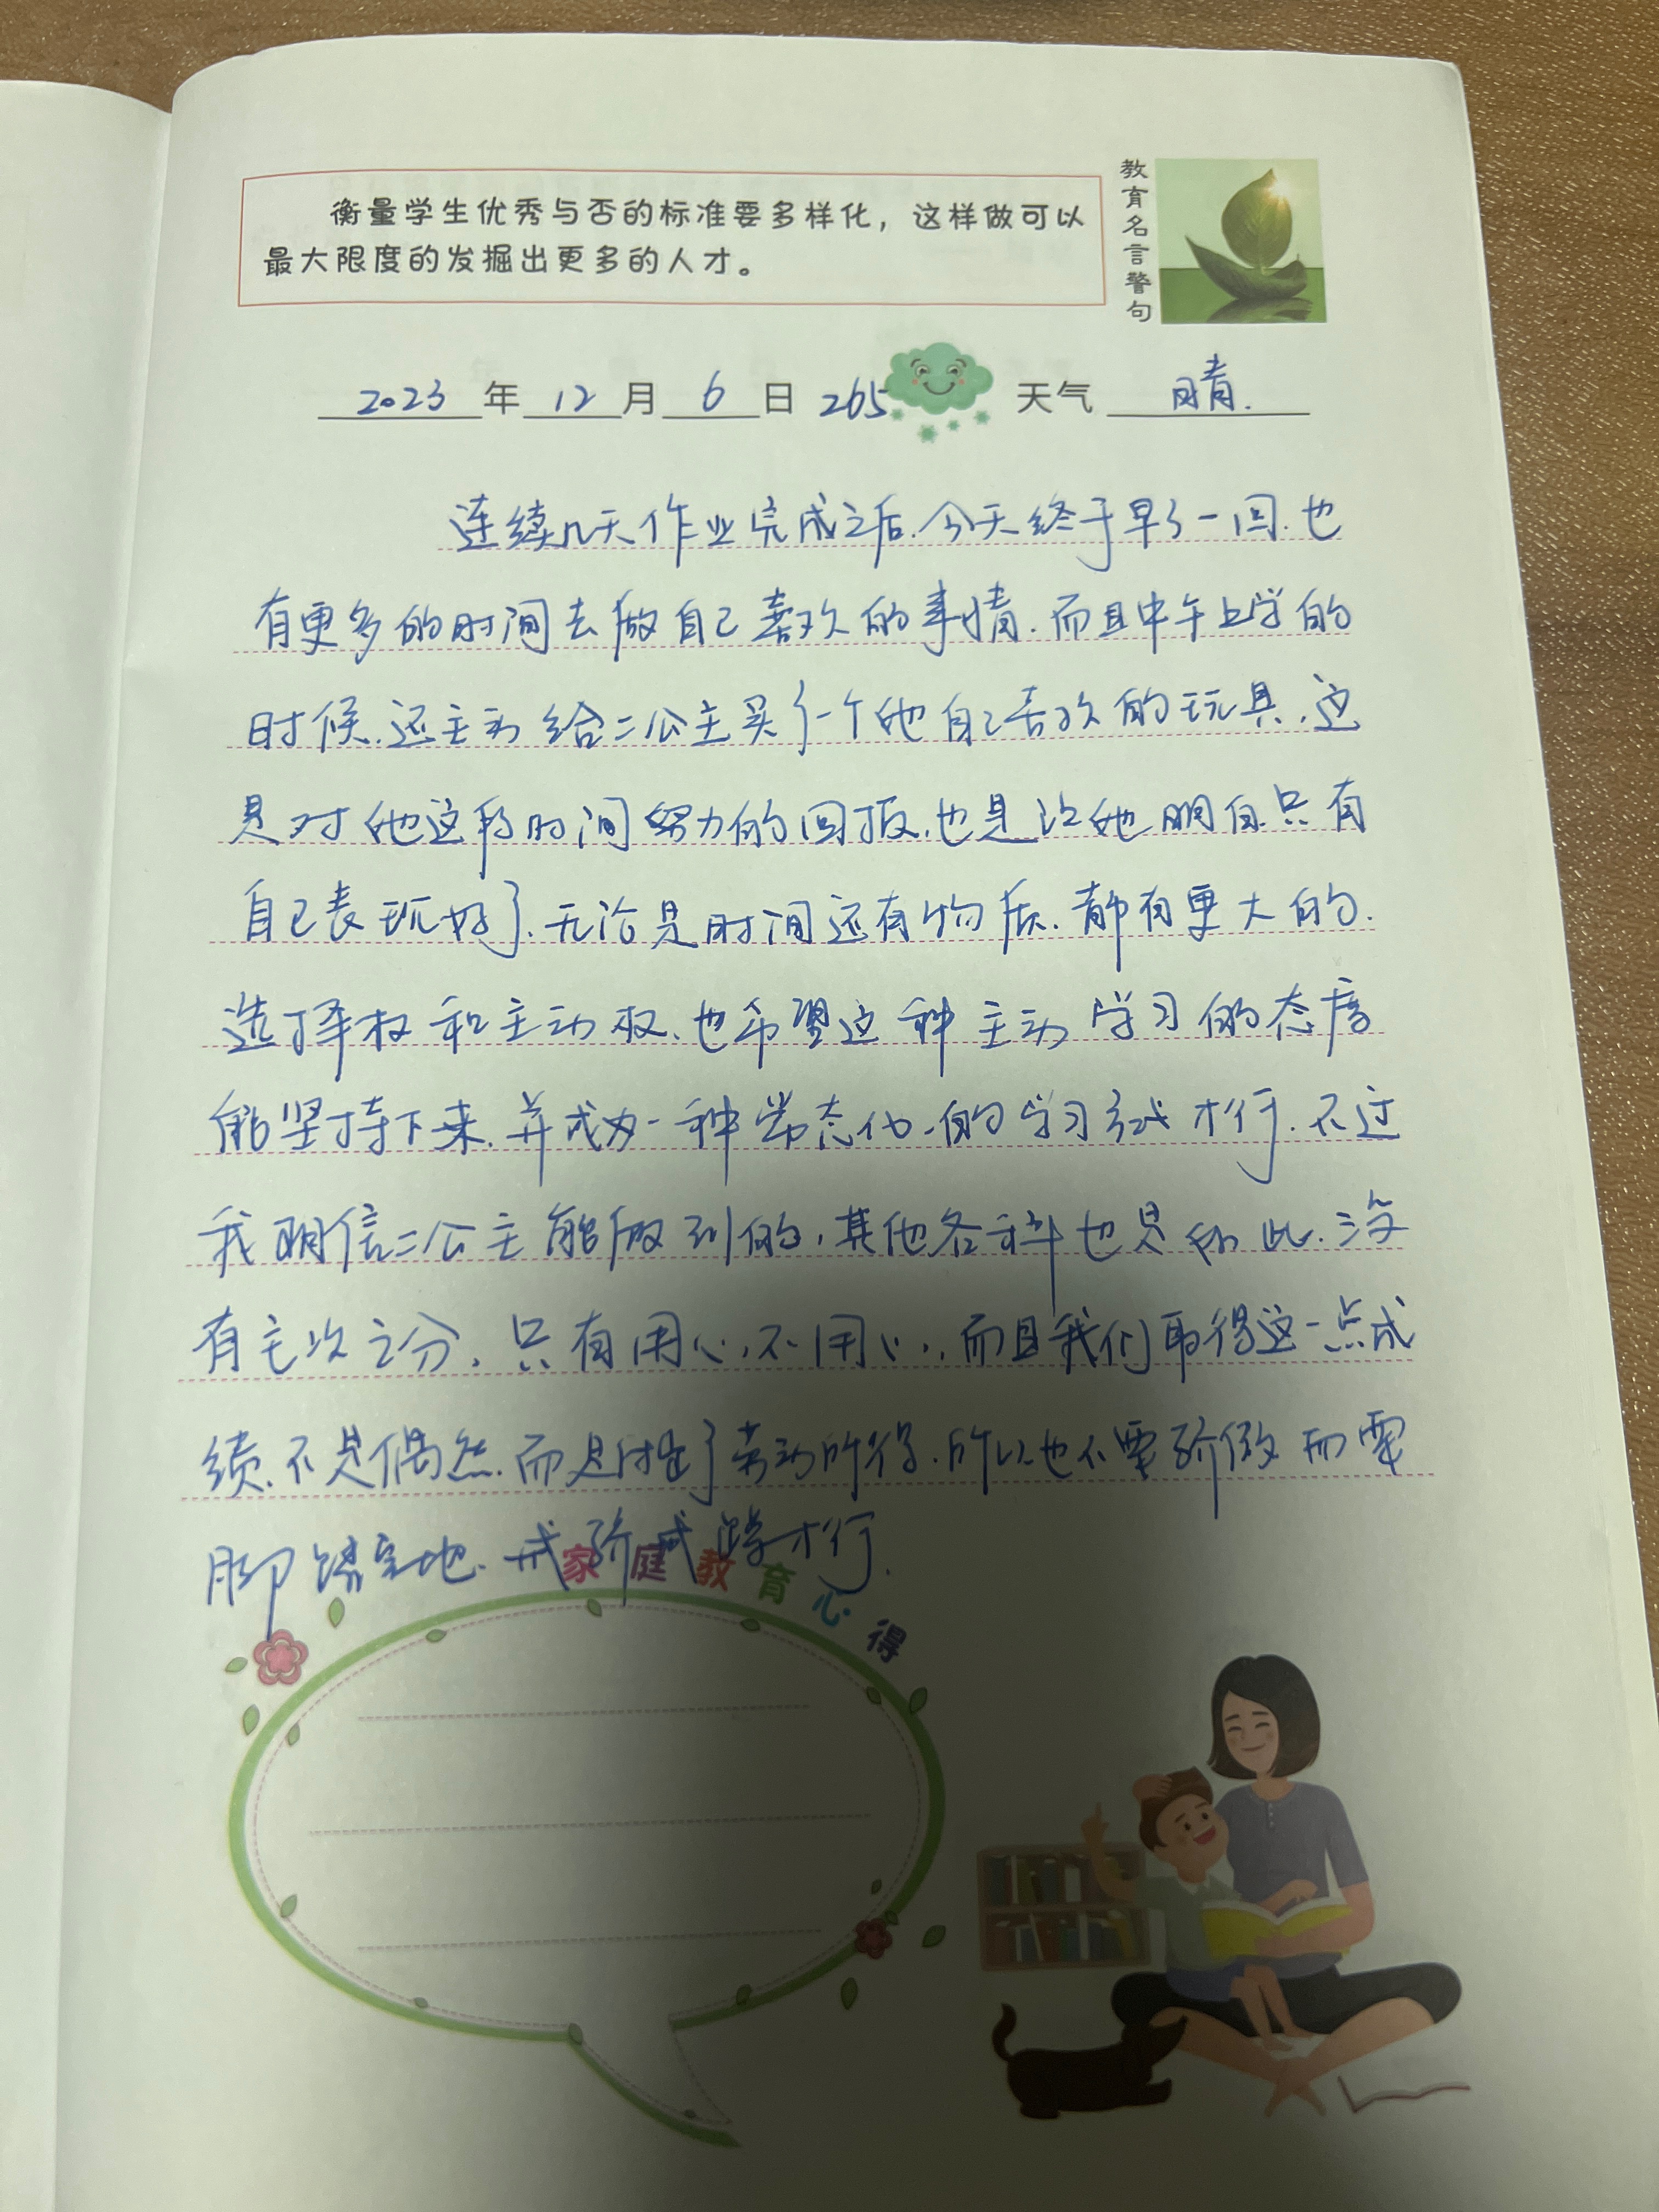 衡量学生优秀与否的标准要多样化，这样做可以
最大限度的发掘出更多的人才。
教育名言警句
2023年12月6日 265 天气 晴.
连续几天作业完成之后.今天终于早了一回.也
有更多的时间去做自己喜欢的事情.而且中午上学的
时候.还主动给二公主买了一个她自己喜欢的玩具.这
是对她这段时间努力的回报.也是让她明白.只有
自己表现好了.无论是时间还有物质.都有更大的.
选择权和主动权.也希望这种主动学习的态度
能坚持下来.并成为一种常态化的学习方式才行.不过
我相信二公主能做到的,其他各科也是如此.没
有主次之分.只有用心,不用心.而且我们取得这一点成
绩.不是偶然.而是付出了劳动所得.所以也不要骄傲而要
脚踏实地.戒骄戒躁才行.
家庭教育心得